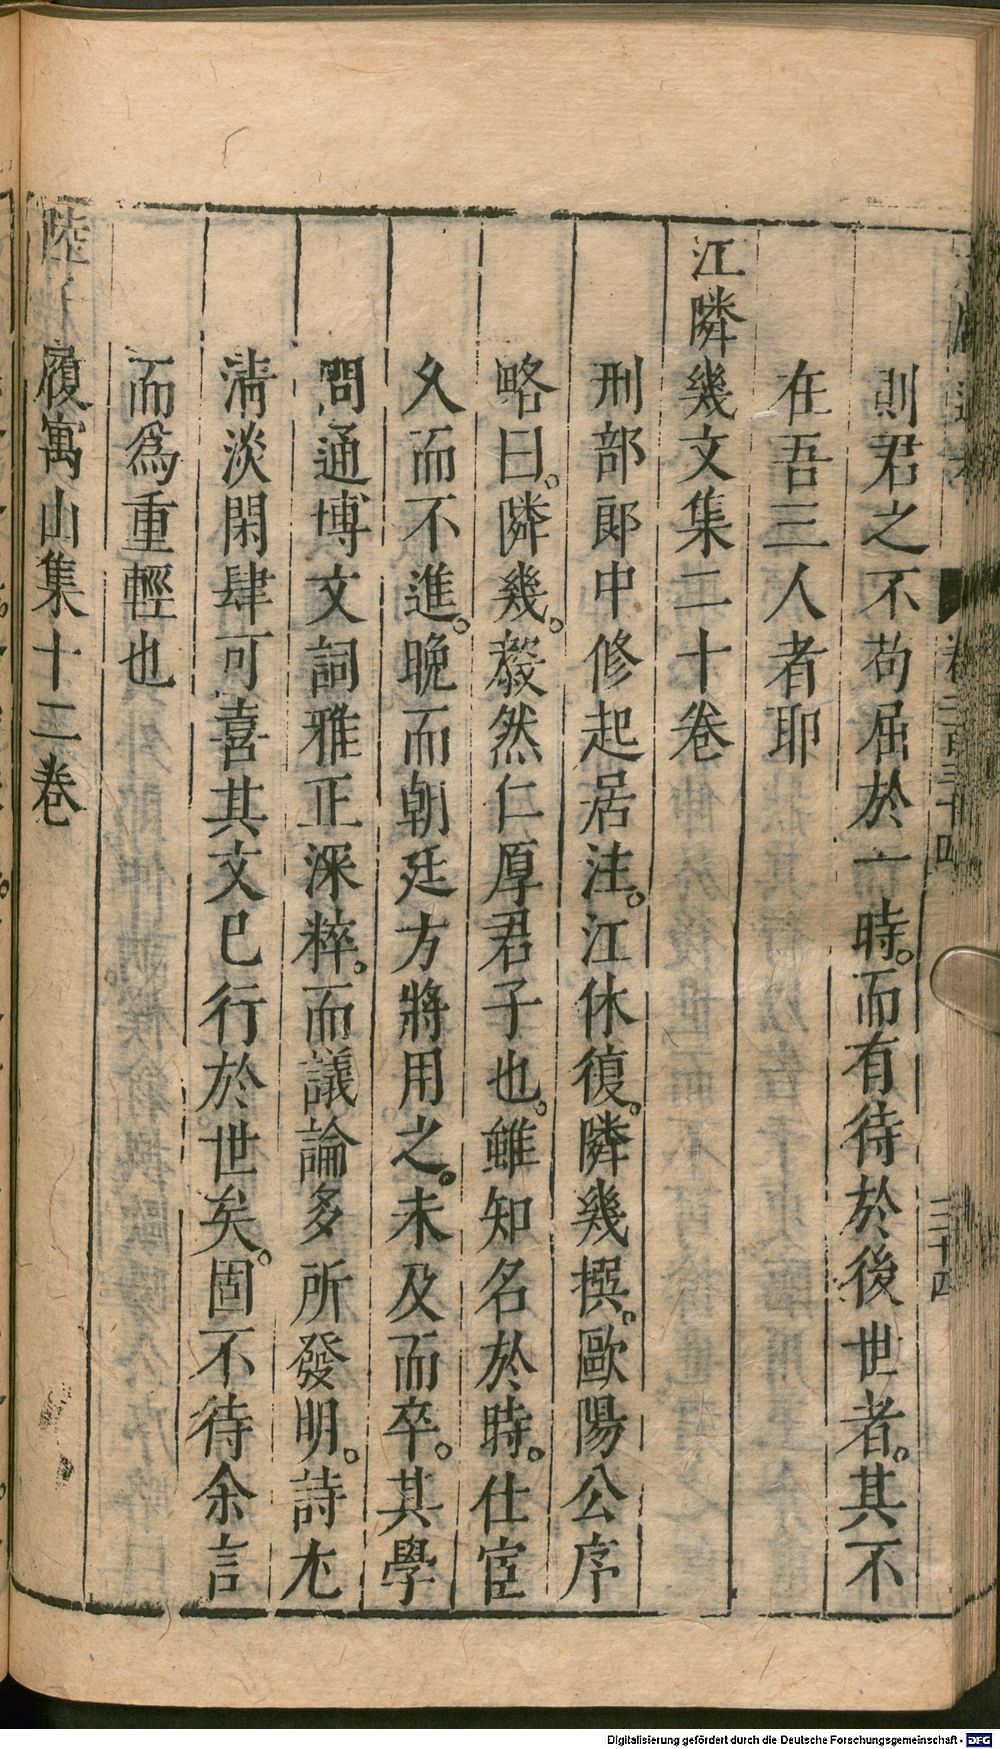 則君之不苟屈於一時。而有待於後世者。其不
在吾三人者耶
江隣幾文集二十卷
刑部郎中修起居注。江休復。隣幾撰。歐陽公序
略曰。隣幾。毅然仁厚君子也。雖知名於時。仕宦
久而不進。晚而朝廷方將用之。未及而卒。其學
問通博文詞雅正深粹。而議論多所發明。詩尤
清淡閑肆可喜其文已行於世矣。固不待余言
而為重輕也
陸子履寓山集十二卷
卷二百三十四
三十四
Digitalisierung gefördert durch die Deutsche Forschungsgemeinschaft - DFG